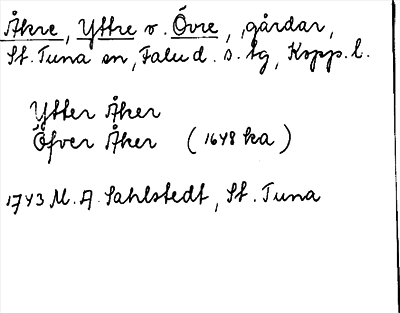 Åkre, Yttre o. Övre, gårdar,
St. Tuna sn, Falu d. s. tg, Kopp. l.
Ytter Åker
Öfver Åker (1648 ka)
1743 M. A. Sahlstedt, St. Tuna